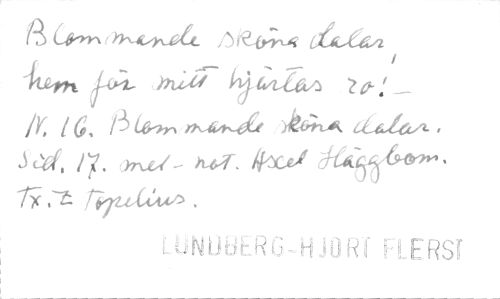 Blommande sköna dalar,
hem för mitt hjärtas ro! -
N. 16. Blommande sköna dalar.
Sid. 17. mel - not. Axel Häggbom.
Tx. Z Topelius.
LUNDBERG-HJORT FLERST